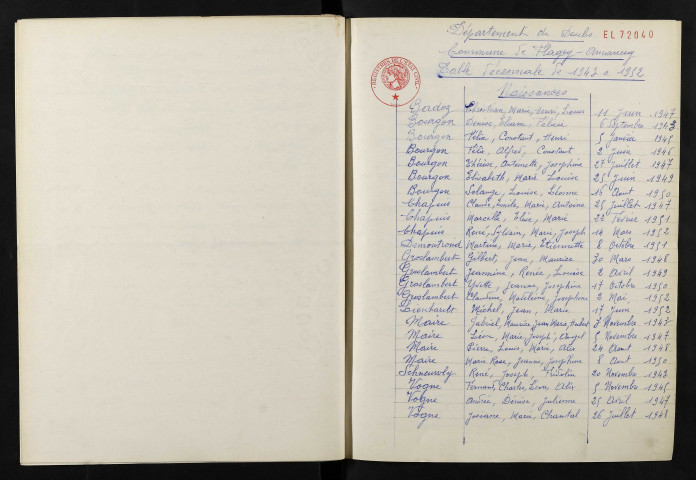 Département du Doubs EL 72040
Commune de Flagey
Table Décennale de 1943 a 1952
REGISTRES DE L'ETAT CIVIL
Naissances
Marie, Henri, Louis 11 Juin 1947
Bourgon Denise, 6 Septembre 1943
Bourgon Félix, Constant, Henri 5 Janvier 1945
Bourgon Félix, Alfred, Constant 2 Juin 1946
Bourgon Thérèse, Antoinette, Josephine 27 Juillet 1947
Bourgon Elisabeth, Marie Louise 25 Juin 1949
Bourgon Solange, Louise, Léonne 15 Aout 1950
Chapuis Claude, Emile, Marie, Antoine 25 Juillet 1947
Chapuis Marcelle, Elise, Marie 22 Février 1951
Chapuis René, Sylvain, Marie, Joseph 14 Mars 1952
Démontrond Martine, Marie, Etiennette 8 Octobre 1951
Groslambert Gilbert, Jean, Maurice 30 Mars 1948
Groslambert Jeannine, Renée, Louise 2 Avril 1949
Groslambert Yvette, Jeanne, Josephine 17 Octobre 1950
Groslambert Claudine, Madeleine, Josephine 2 Mai 1952
Lienhardt Michel, Jean, Marie 17 Juin 1952
Maire Gabriel, Maurice, Jean Marie, Hubert 7 Novembre 1943
Maire Léon, Marie, Joseph, 5 Novembre 1947
Maire Pierre, Louis, Marie, Alix 24 Aout 1948
Maire Marie Rose, Jeanne, Josephine 8 Aout 1950
Schneuwly René, Joseph, Fridolin 20 Novembre 1943
Vogne Fernand, Charles, Léon, Alix 5 Novembre 1945
Vogne Andrée, Denise, Julienne 25 Avril 1947
Vogne Josiane, Marie, Chantal 26 Juillet 1948